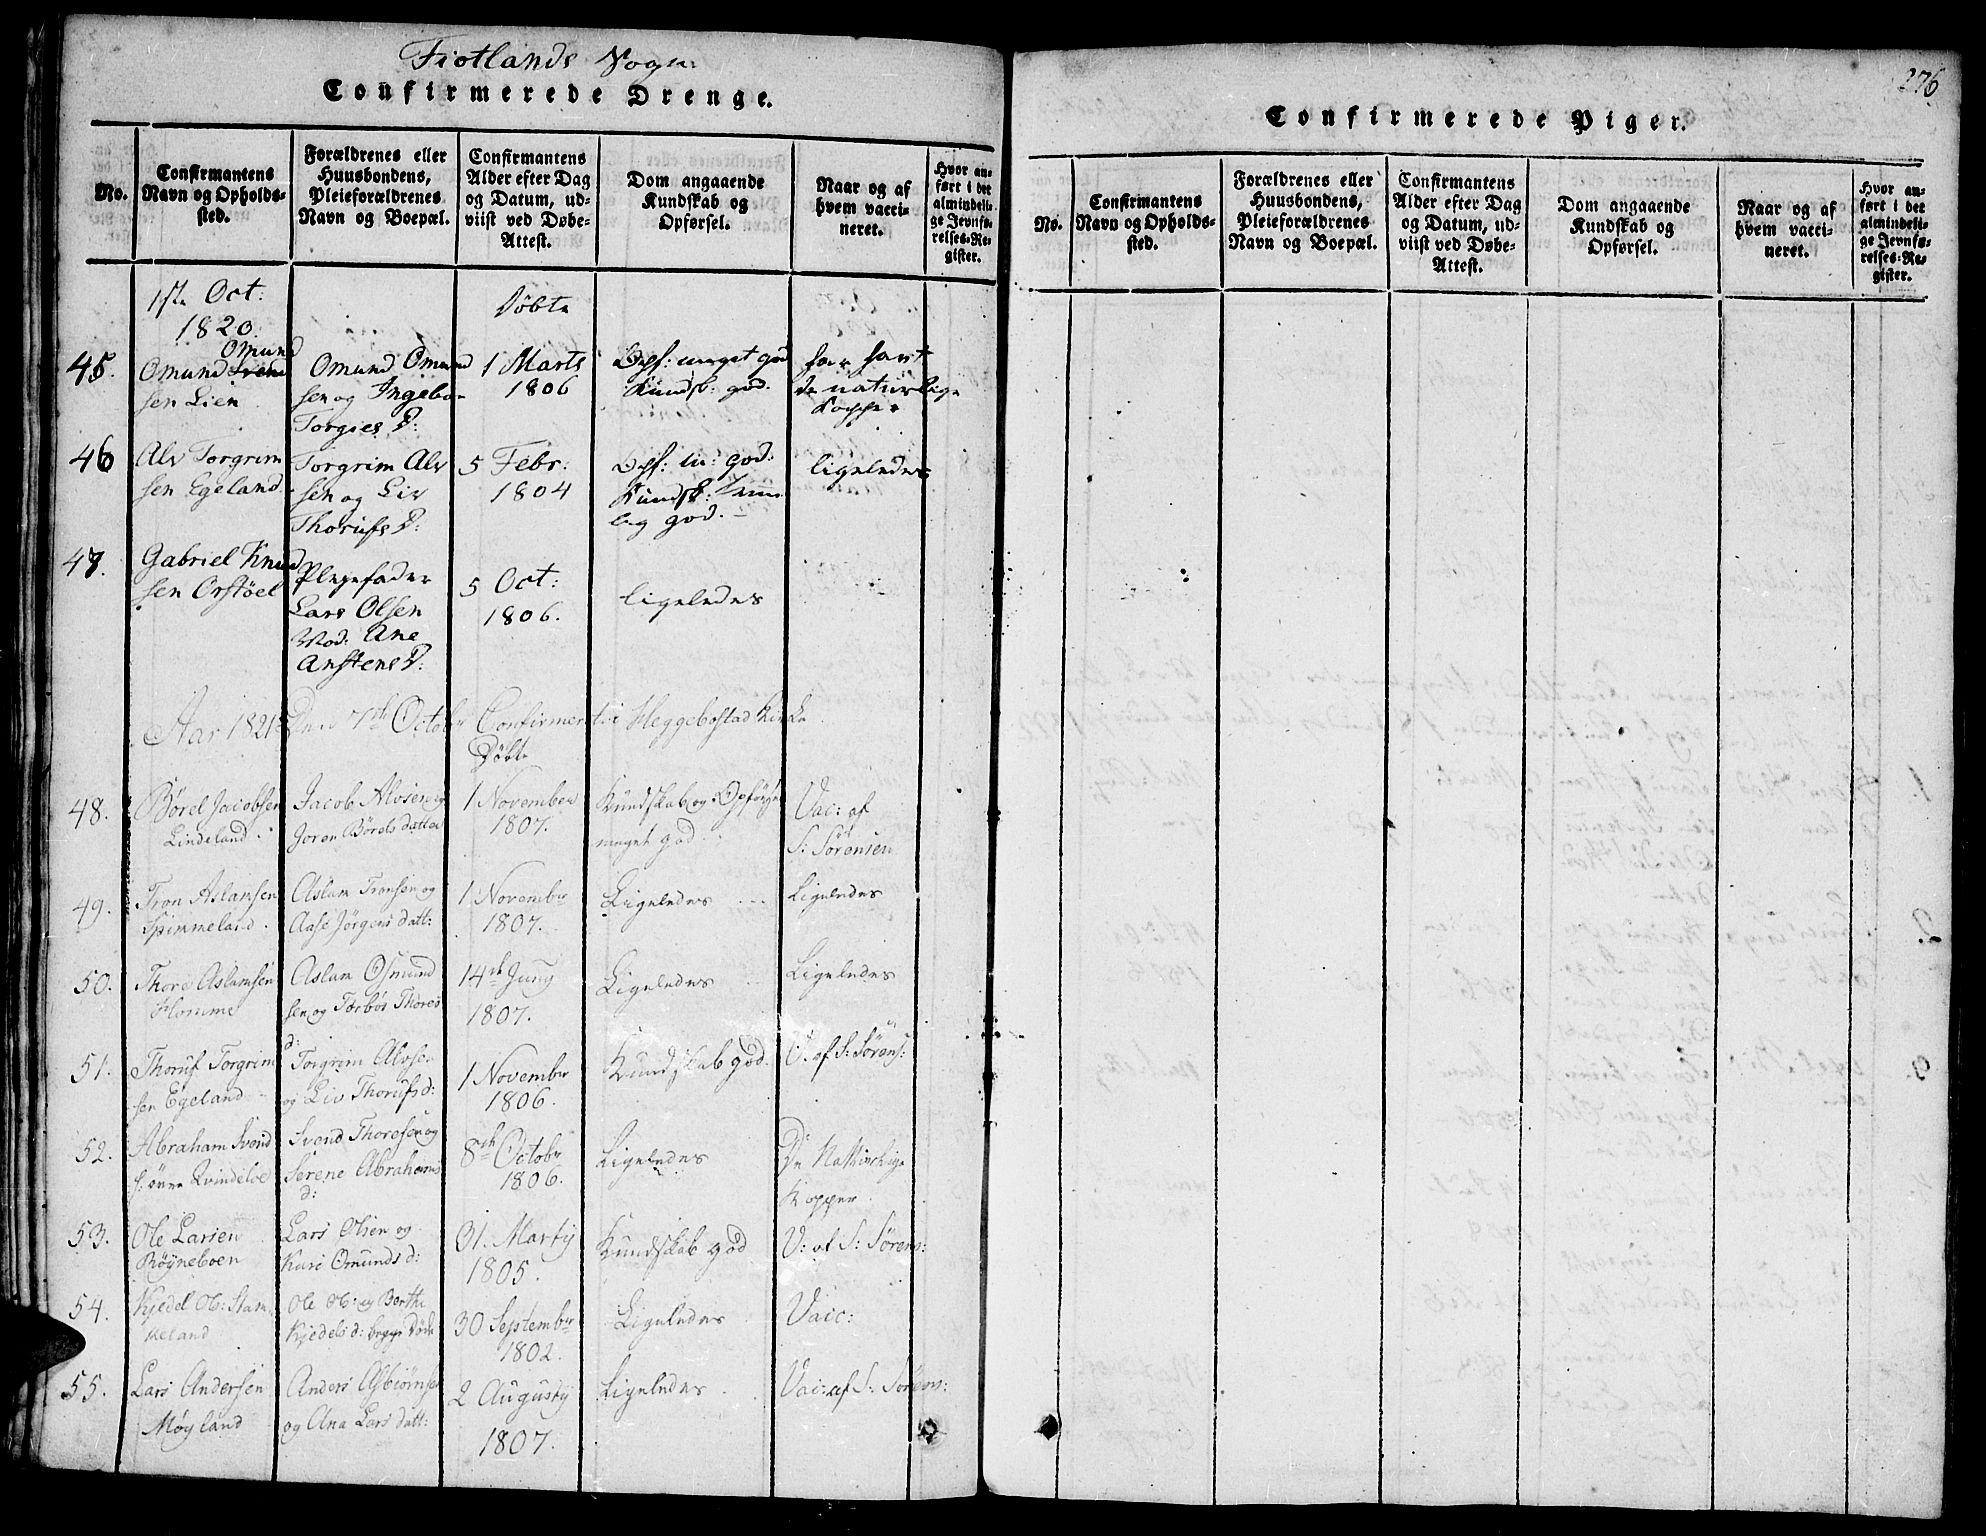 Fiotlands Sogn:
Confirmerede Drenge.
No.
Confirmantens
Navn og Opholds-
sted.
Forældrenes eller
Huusbondens,
Pleieforældrenes
Navn og Boepæl.
Confirmantens
Alder efter Dag
og Datum, ud-
viist ved Døbe-
Attest.
Dom angaaende
Kundskab og
Opførsel.
Naar og af
hvem vacci-
neret.
Hvor an-
ført i det
almindeli-
ge Jevnfø-
relses-Re-
gister.
1ste Oct:
1820.
Døbte
45.
Omund
Omund Svend
sen Lien
Omund Omund
sen og Ingebor
Torgies D:
1 Marts
1806
Opf: meget god
Kundsk: god.
har havt
de naturlige
Kopper
46
Alv Torgrim
sen Egeland
Torgrim Alv
sen og Liv
Thorufs D:
5 Febr:
1804
Opf: m: god:
Kundsk: tem
lig god. –
ligeledes
47.
Gabriel Knud
sen Orstøel
Plejefader
Lars Olsen
Mod: Ane
Anstens D:
5 Oct:
1806.
ligeledes
Aar 1821 Den 7de Octobr Confirmert i Heggebostad Kirke
Døbte
48.
Børel Jacobsen
Lindeland.
Jacob Alvsen og
Joren Børels datter
1 November
1807.
Kundskab og Opførsel
meget god
Vac: af
S: Sørensen
49.
Tron Aslamsen
Spinneland.
Aslam Tronsen og
Aase Jørgens datt:
1 Novembr
1807.
Ligeledes
Ligeledes
50.
Thore Aslamsen
Homme
Aslam Osmund
sen og Torbør Thores
d:
14de Juny
1807.
Ligeledes
Ligeledes
51.
Thoruf Torgrim
sen Egeland
Torgrim Alvsen
og Liv Thorufs d:
1 November
1806.
Kundskab god.
V. af S: Sørens:
52.
Abraham Svend
Svend Thoresen og
Serene Abrahams
d:
8de Octobr
1806.
Ligeledes
De
Kopper
53.
Ole Larsen
Røyneboen
Lars Olsen og
Kari Omunds d:
31. Martij
1805.
Kundskab god
V: af S: Sørens:
54.
Kjedel Ol: Stam
keland
Ole Ol: og Berthe
Kjedels d: begge Døde
30 Septembr
1802.
Ligeledes
Vaic:
55.
Lars Andersen
Møyland
Anders Asbiørnsen
og Ana Lars datt:
2 Augustij
1807.
Ligeledes
Vac: af S: Sørens:
276
Confirmerede Piger.
No.
Confirmantens
Navn og Opholds-
sted.
Forældrenes eller
Huusbondens,
Pleieforældrenes
Navn og Boepæl.
Confirmantens
Alder efter Dag
og Datum, ud-
viist ved Døbe-
Attest.
Dom angaaende
Kundskab og
Opførsel.
Naar og af
hvem vacci-
neret.
Hvor an-
ført i det
almindeli-
ge Jevnfø-
relses-Re-
gister.